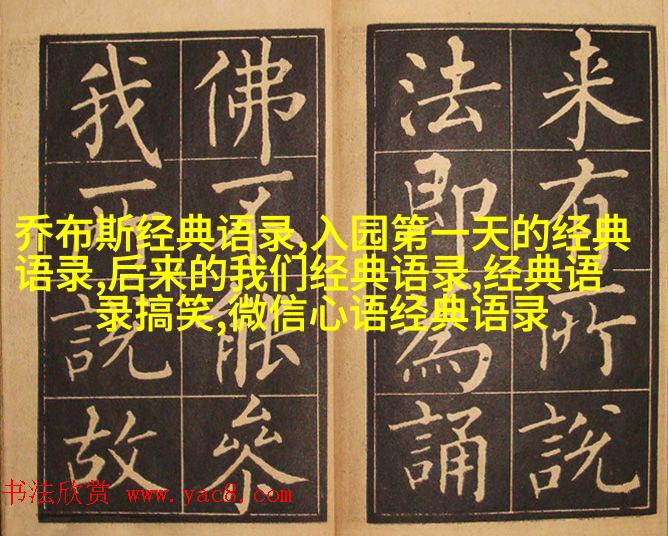 来有所說
法即為誦
佛不能叅
我所說故
乔布斯经典语录,入园第一天的经典
语录,后来的我们经典语录,经典语
录搞笑,微信心语经典语录
书法欣赏 www.yac8.com